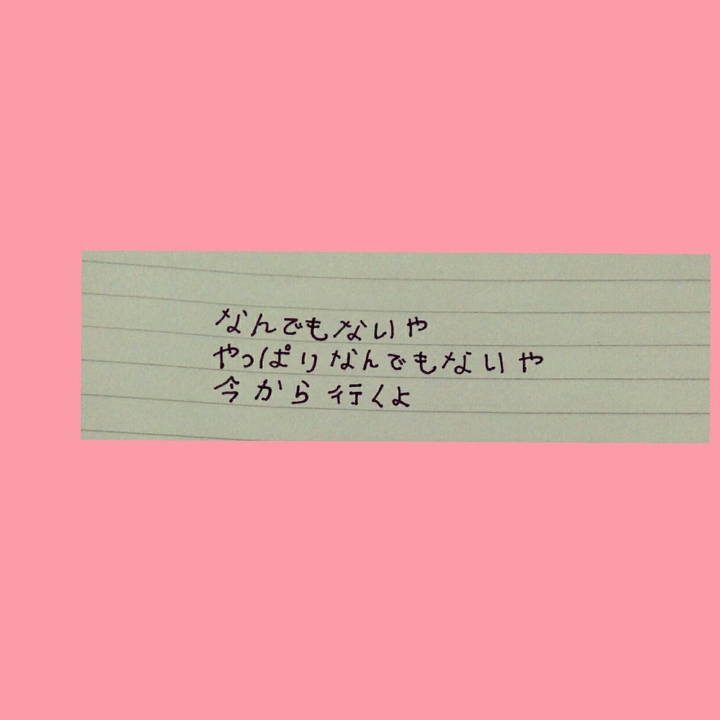 なんでもないや
やっぱりなんでもないや
今から行くよ